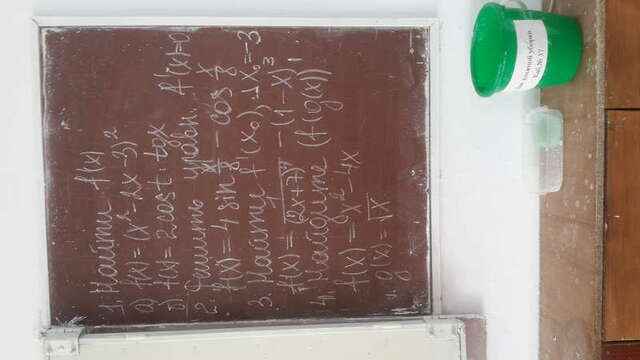 1. Найти f'(x)
а) f(x) = (x² - 2x - 3)²
б) f(x) = 2cos t · tgx
2. Решить уравн. f'(x)=0
f(x) = 4 sin x/8 - cos x/8
3. Найти f'(x₀), x₀=-3
f(x) = 1/(2x+7)⁴ - (1-x)³
4. Найдите (f(g(x))'
f(x) = x² - 4x
g(x) = √x
Для влажной уборки
Каб № 37